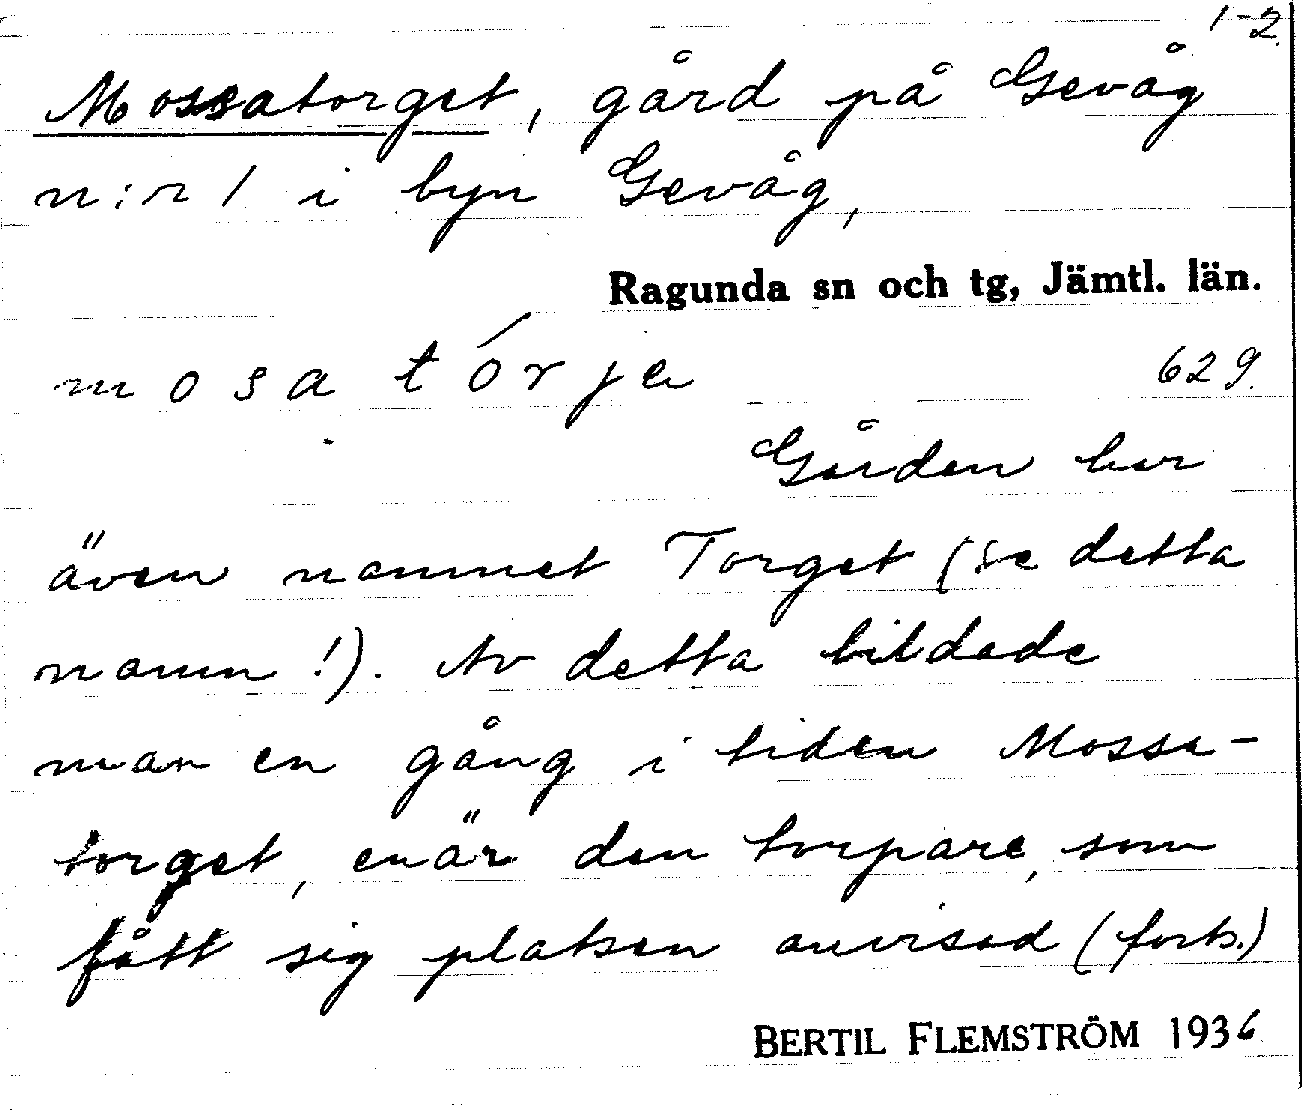 1-2.
Mossatorget, gård på Gevåg
n:r 1 i byn Gevåg,
Ragunda sn och tg, Jämtl. län.
mosa tórje 629.
Gården har
även namnet Torget (se detta
namn!). Av detta bildade
man en gång i tiden Mossa-
torget, enär den torpare, som
fått sig platsen anvisad (forts.)
BERTIL FLEMSTRÖM 1936